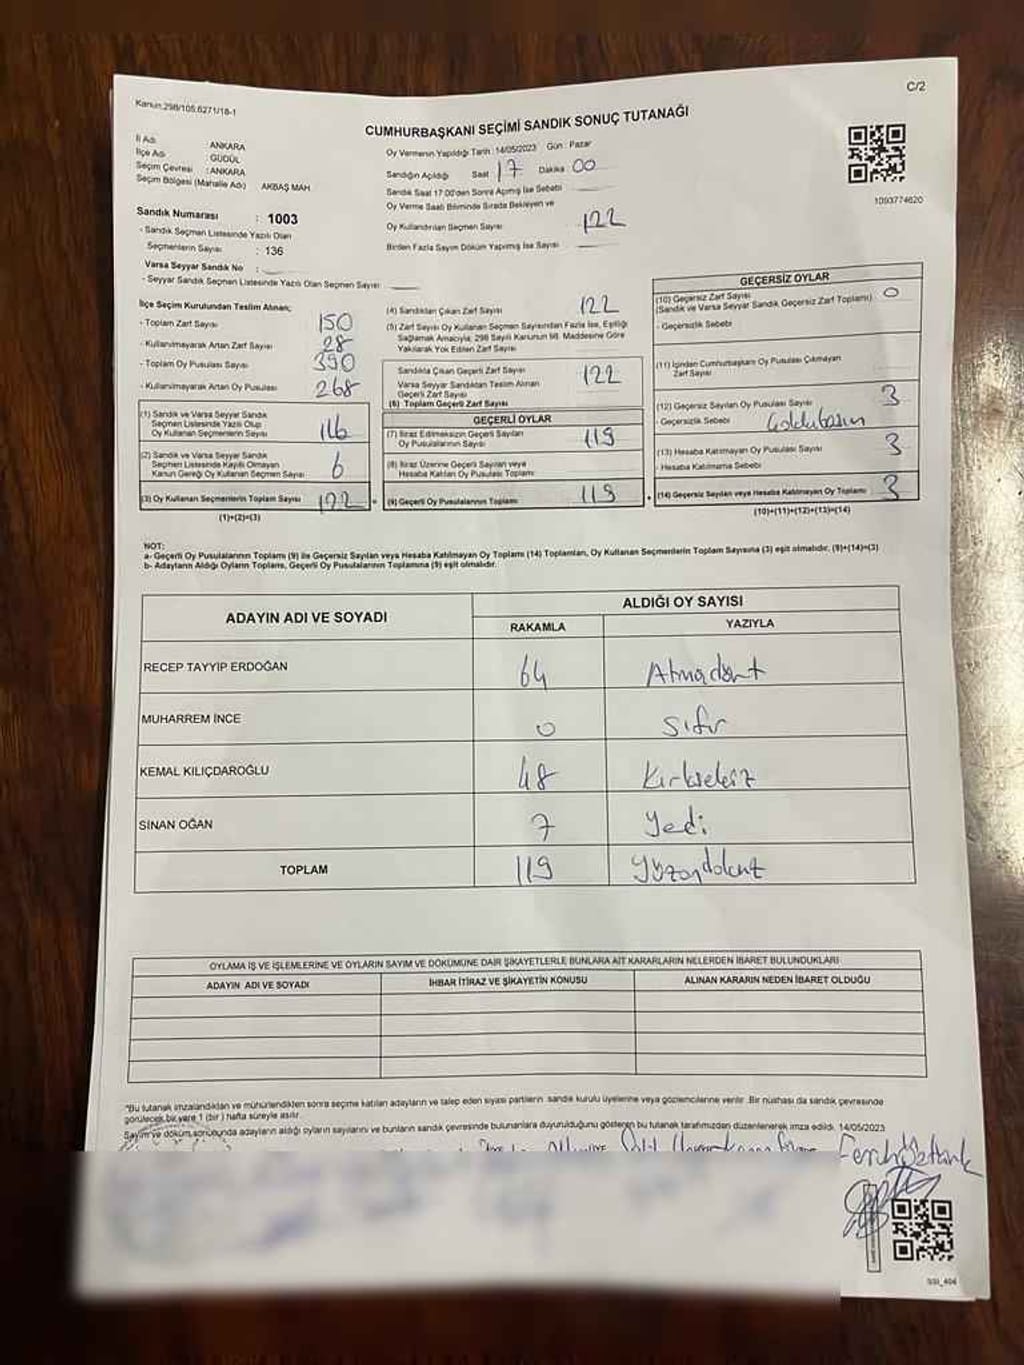 C/2
Kanun:298/105,6271/18-1
CUMHURBAŞKANI SEÇİMİ SANDIK SONUÇ TUTANAĞI
İl Adı : ANKARA
İlçe Adı : GÜDÜL
Seçim Çevresi : ANKARA
Seçim Bölgesi (Mahalle Adı) AKBAŞ MAH
Sandık Numarası : 1003
- Sandık Seçmen Listesinde Yazılı Olan
Seçmenlerin Sayısı : 136
Varsa Seyyar Sandık No :
- Seyyar Sandık Seçmen Listesinde Yazılı Olan Seçmen Sayısı
Oy Vermenin Yapıldığı Tarih :14/05/2023 Gün : Pazar
Sandığın Açıldığı Saat 17 Dakika 00
Sandık Saat 17:00'den Sonra Açılmış İse Sebebi
Oy Verme Saati Bitiminde Sırada Bekleyen ve
Oy Kullandırılan Seçmen Sayısı 122
Birden Fazla Sayım Döküm Yapılmış İse Sayısı
1093774620
İlçe Seçim Kurulundan Teslim Alınan;
- Toplam Zarf Sayısı 150
- Kullanılmayarak Artan Zarf Sayısı 28
- Toplam Oy Pusulası Sayısı 390
- Kullanılmayarak Artan Oy Pusulası 268
(1) Sandık ve Varsa Seyyar Sandık
Seçmen Listesinde Yazılı Olup
Oy Kullanan Seçmenlerin Sayısı 116
(2) Sandık ve Varsa Seyyar Sandık
Seçmen Listesinde Kayıtlı Olmayan
Kanun Gereği Oy Kullanan Seçmen Sayısı 6
(3) Oy Kullanan Seçmenlerin Toplam Sayısı 122
(1)+(2)=(3)
(4) Sandıktan Çıkan Zarf Sayısı 122
(5) Zarf Sayısı Oy Kullanan Seçmen Sayısından Fazla İse, Eşitliği
Sağlamak Amacıyla; 298 Sayılı Kanunun 98. Maddesine Göre
Yakılarak Yok Edilen Zarf Sayısı
Sandıkta Çıkan Geçerli Zarf Sayısı 122
Varsa Seyyar Sandıktan Teslim Alınan
Geçerli Zarf Sayısı
(6) Toplam Geçerli Zarf Sayısı
GEÇERLİ OYLAR
(7) İtiraz Edilmeksizin Geçerli Sayılan
Oy Pusulalarının Sayısı 119
(8) İtiraz Üzerine Geçerli Sayılan veya
Hesaba Katılan Oy Pusulası Toplamı
(9) Geçerli Oy Pusulalarının Toplamı 119
GEÇERSİZ OYLAR
(10) Geçersiz Zarf Sayısı 0
(Sandık ve Varsa Seyyar Sandık Geçersiz Zarf Toplamı)
- Geçersizlik Sebebi
(11) İçinden Cumhurbaşkanı Oy Pusulası Çıkmayan
Zarf Sayısı
(12) Geçersiz Sayılan Oy Pusulası Sayısı 3
- Geçersizlik Sebebi
(13) Hesaba Katılmayan Oy Pusulası Sayısı 3
- Hesaba Katılmama Sebebi
(14) Geçersiz Sayılan veya Hesaba Katılmayan Oy Toplamı 3
(10)+(11)+(12)+(13)=(14)
NOT:
a- Geçerli Oy Pusulalarının Toplamı (9) ile Geçersiz Sayılan veya Hesaba Katılmayan Oy Toplamı (14) Toplamları, Oy Kullanan Seçmenlerin Toplam Sayısına (3) eşit olmalıdır. (9)+(14)=(3)
b- Adayların Aldığı Oyların Toplamı, Geçerli Oy Pusulalarının Toplamına (9) eşit olmalıdır.
ADAYIN ADI VE SOYADI ALDIĞI OY SAYISI
RAKAMLA YAZIYLA
RECEP TAYYİP ERDOĞAN 64 Atmışdört
MUHARREM İNCE 0 Sıfır
KEMAL KILIÇDAROĞLU 48 Kırksekiz
SİNAN OĞAN 7 Yedi
TOPLAM 119 Yüzondokuz
OYLAMA İŞ VE İŞLEMLERİNE VE OYLARIN SAYIM VE DÖKÜMÜNE DAİR ŞİKAYETLERLE BUNLARA AİT KARARLARIN NELERDEN İBARET BULUNDUKLARI
ADAYIN ADI VE SOYADI İHBAR İTİRAZ VE ŞİKAYETİN KONUSU ALINAN KARARIN NEDEN İBARET OLDUĞU
*Bu tutanak imzalandıktan ve mühürlendikten sonra seçime katılan adayların ve talep eden siyasi partilerin sandık kurulu üyelerine veya gözlemcilerine verilir .Bir nüshası da sandık çevresinde
görülecek bir yere 1 (bir) hafta süreyle asılır.
Sayım ve döküm sonucunda adayların aldığı oyların sayılarını ve bunların sandık çevresinde bulunanlara duyurulduğunu gösteren bu tutanak tarafımızdan düzenlenerek imza edildi. 14/05/2023
SSI_404